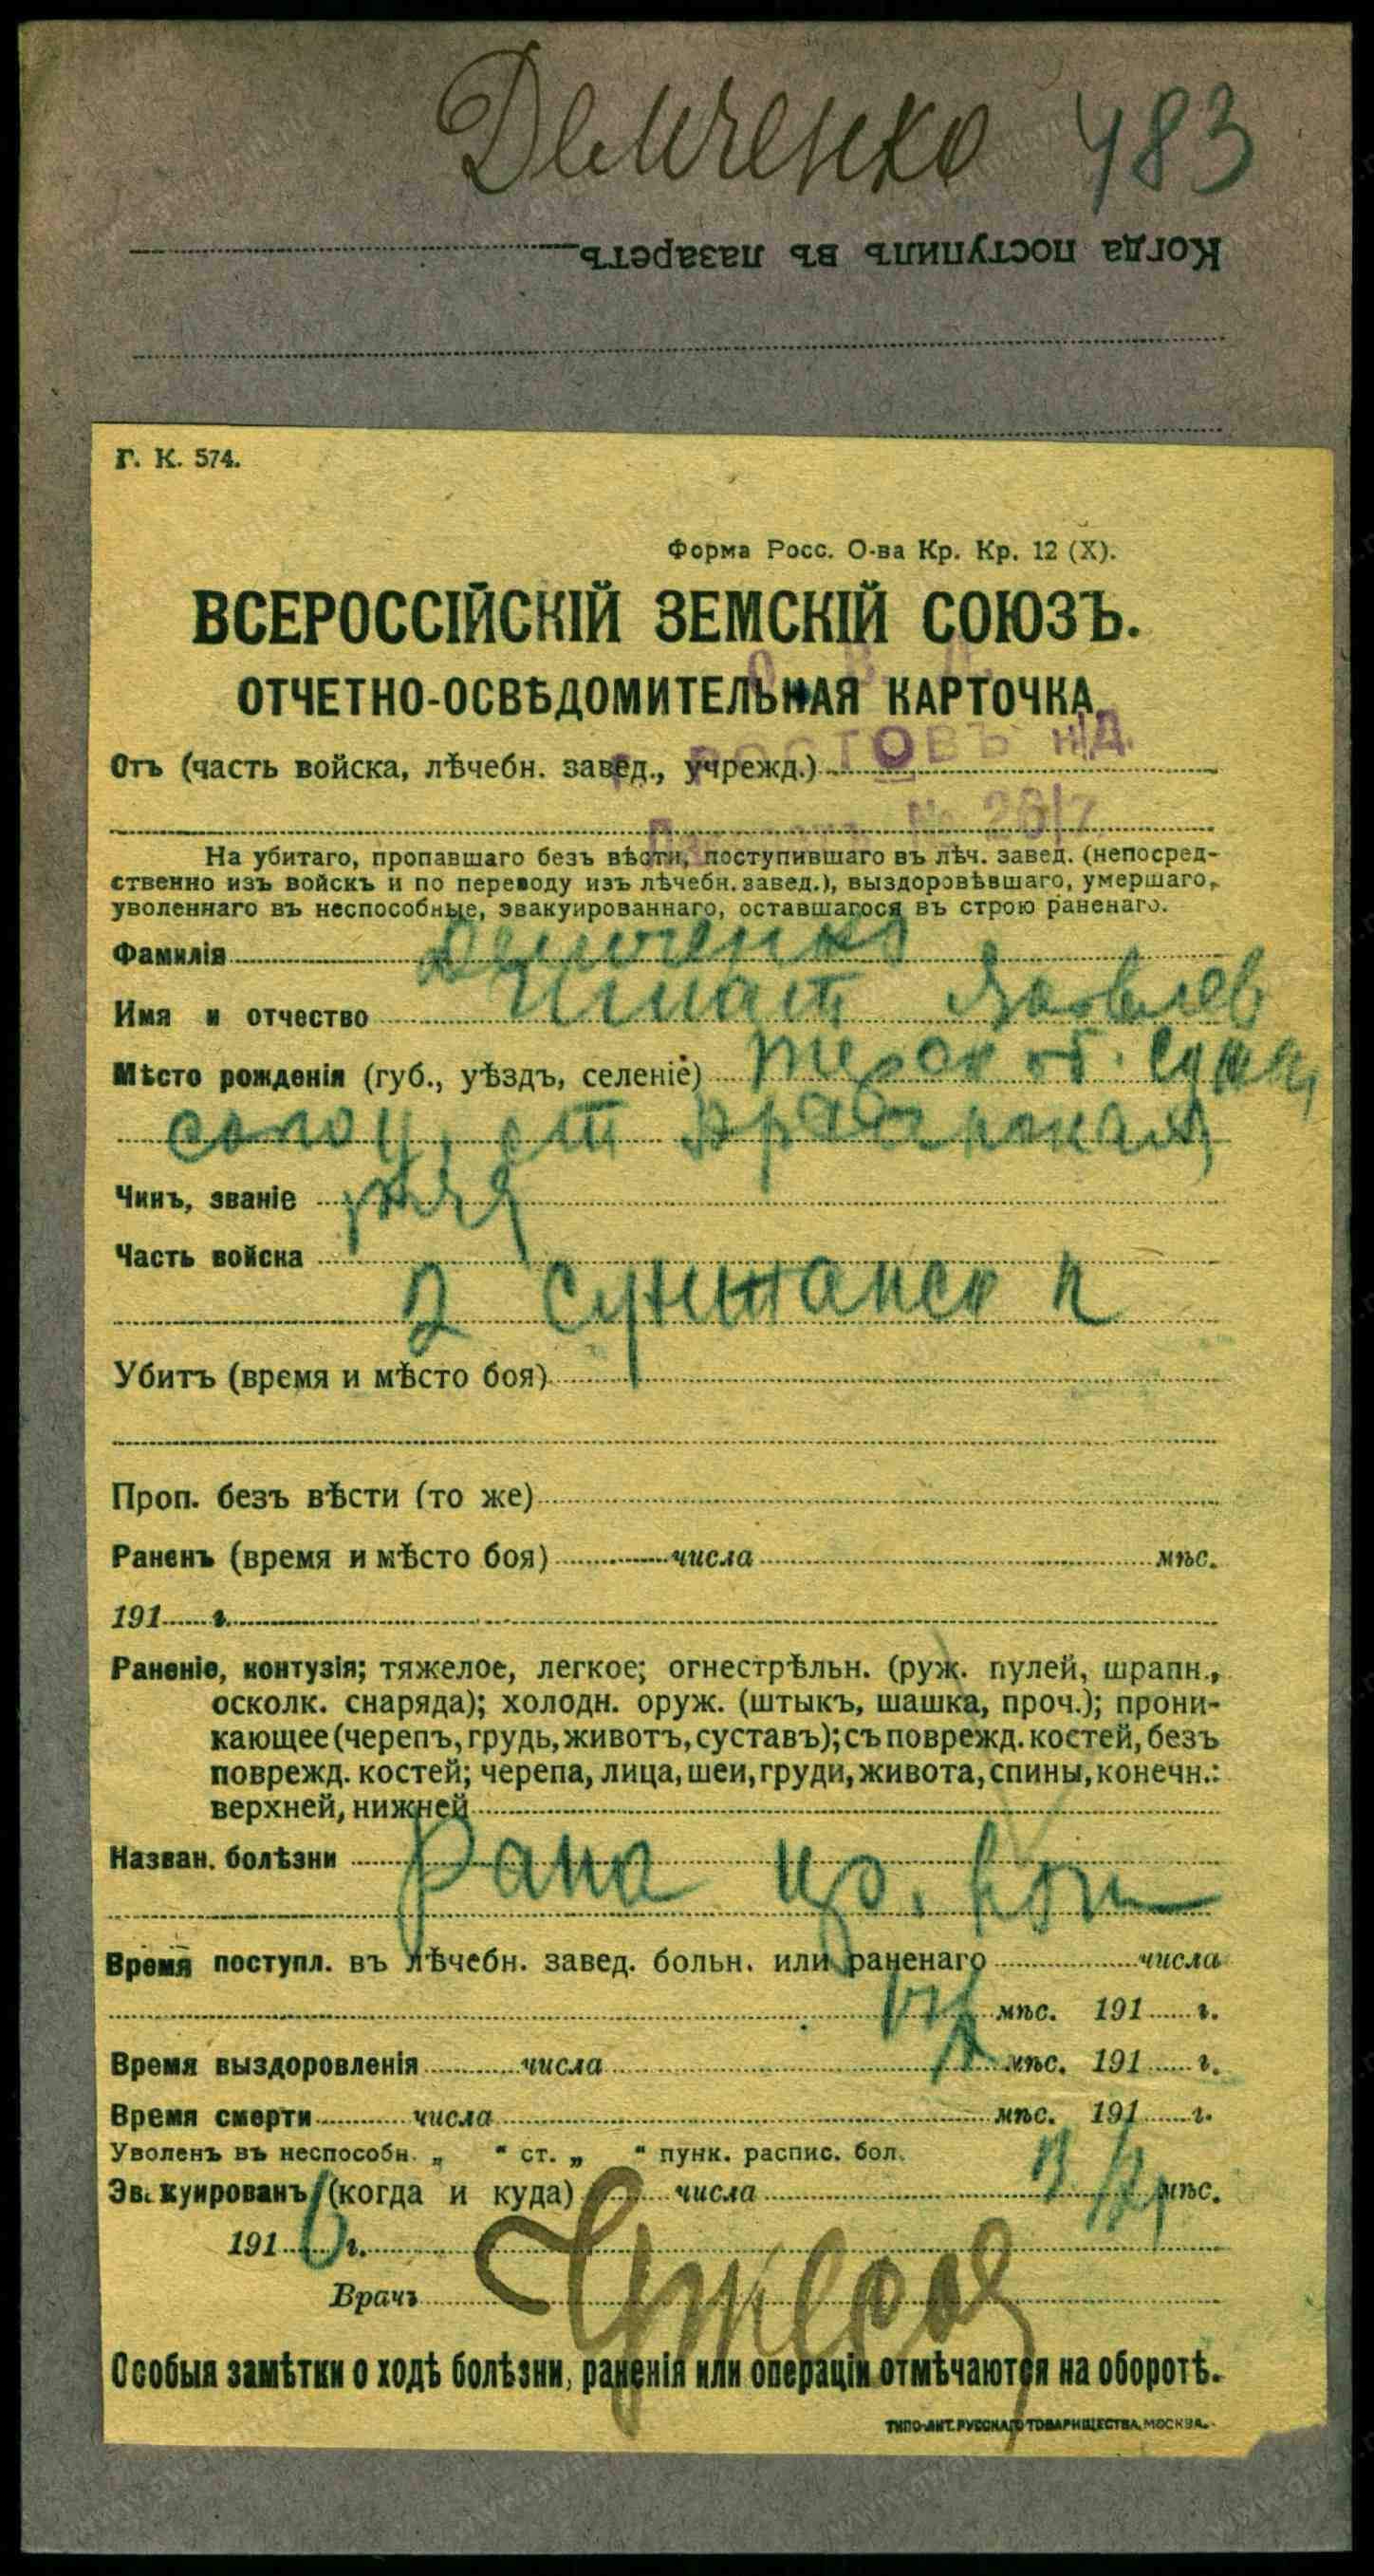 Демченко 483
Когда поступилъ въ лазаретъ
Г. К. 574.
Форма Росс. О-ва Кр. Кр. 12 (X).
ВСЕРОССІЙСКІЙ ЗЕМСКІЙ СОЮЗЪ.
ОТЧЕТНО-ОСВѢДОМИТЕЛЬНАЯ КАРТОЧКА
г. РОСТОВЪ н/Д.
Отъ (часть войска, лѣчебн. завед., учрежд.)
№ 26/7
На убитаго, пропавшаго безъ вѣсти, поступившаго въ лѣч. завед. (непосред-
ственно изъ войскъ и по переводу изъ лѣчебн. завед.), выздоровѣвшаго, умершаго,
уволеннаго въ неспособные, эвакуированнаго, оставшагося въ строю раненаго.
Фамилія Демченко
Имя и отчество Игнат Яковлев
Мѣсто рожденія (губ., уѣздъ, селеніе) Терск об.
ст
Чинъ, званіе
Часть войска
2 Сунженск п
Убитъ (время и мѣсто боя)
Проп. безъ вѣсти (то же)
Раненъ (время и мѣсто боя) числа мѣс.
191 г.
Раненіе, контузія; тяжелое, легкое; огнестрѣльн. (руж. пулей, шрапн.,
осколк. снаряда); холодн. оруж. (штыкъ, шашка, проч.); прони-
кающее (черепъ, грудь, животъ, суставъ); съ поврежд. костей, безъ
поврежд. костей; черепа, лица, шеи, груди, живота, спины, конечн.:
верхней, нижней
Назван. болѣзни рана
Время поступл. въ лѣчебн. завед. больн. или раненаго числа
мѣс. 191 г.
Время выздоровленія числа мѣс. 191 г.
Время смерти числа мѣс. 191 г.
Уволенъ въ неспособн. „ “ ст. „ “ пунк. распис. бол.
Эвакуированъ (когда и куда) числа мѣс.
191 6 г.
Врачъ
Особыя замѣтки о ходѣ болѣзни, раненія или операціи отмѣчаются на оборотѣ.
ТИПО-ЛИТ. РУССКАГО ТОВАРИЩЕСТВА, МОСКВА.